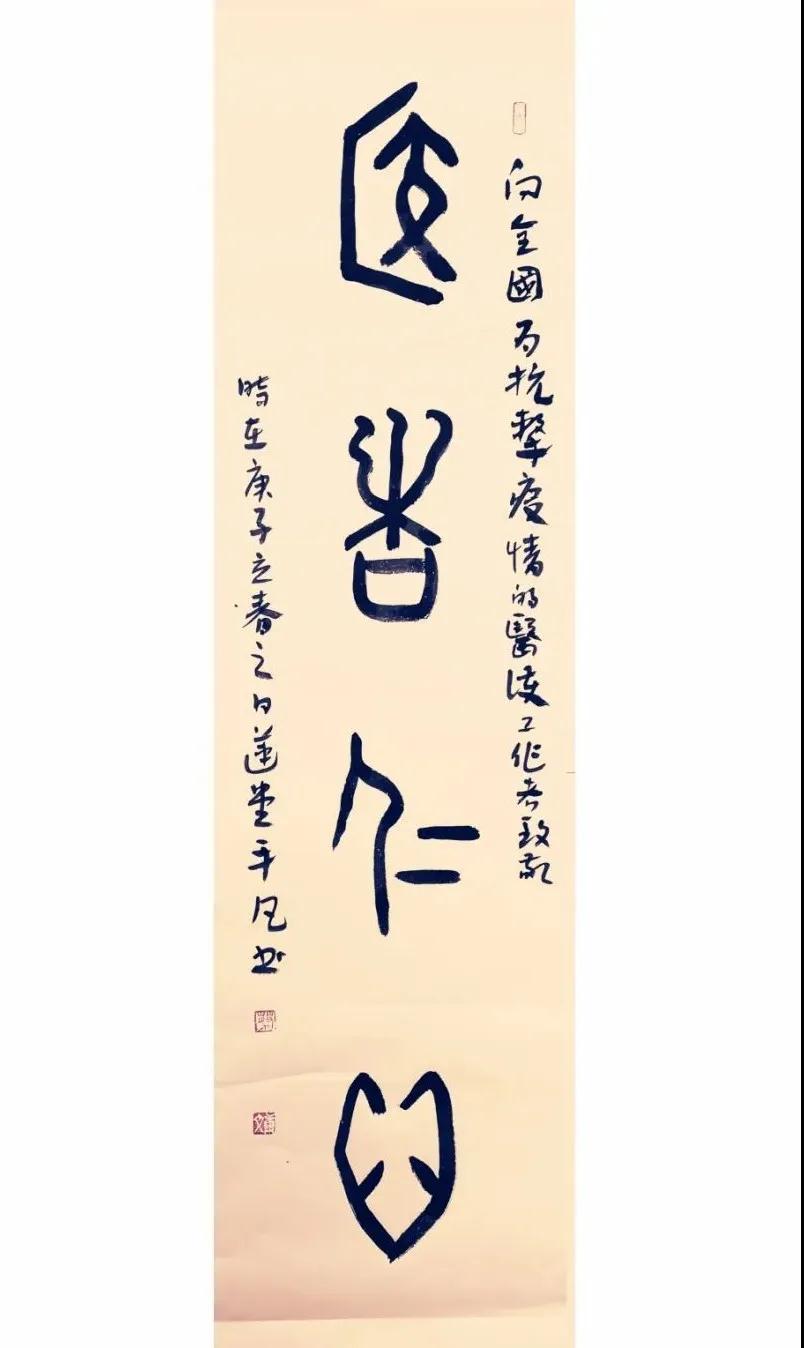 向全國为抗擊疫情的醫護工作者致敬
医者仁心
時在庚子立春之日蓮堂平凡書